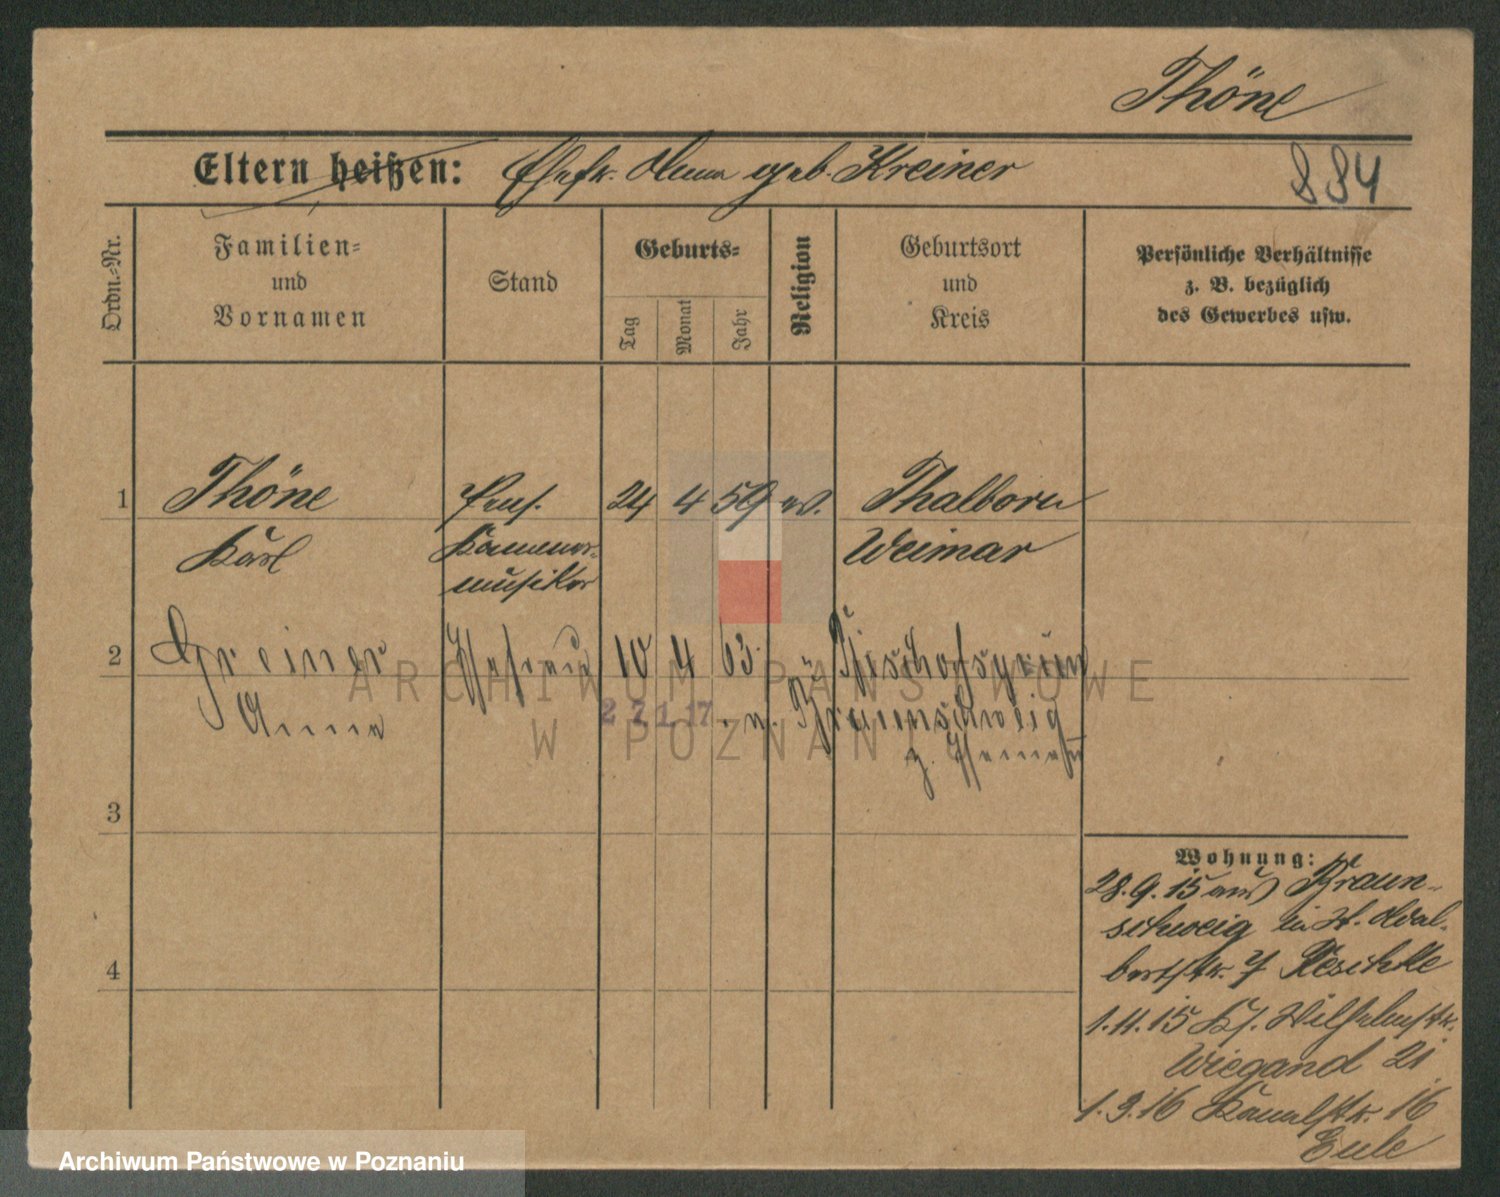 Thöne
Eltern heißen: Ehefr. Anna geb. Kreiner
884
Ordn.-Nr.
Familien-
und
Vornamen
Stand
Geburts-
Tag
Monat
Jahr
Religion
Geburtsort
und
Kreis
Persönliche Verhältnisse
z. B. bezüglich
des Gewerbes usw.
1 Thöne Pens. 24 4 59 ev. Thalborn
Karl Kammer- Weimar
musiker
2 Greiner Ehefrau 10 4 63 Bischofsgrün
Anna 27.1.17. n. Braunschweig
z.
3
4
Wohnung:
28.9.15 aus Braun-
schweig in St. Adal-
bertstr. 7 Reschke
1.11.15 Kl. Wilhelmstr.
Wiegand 21
1.3.16 Kanalstr. 16
Eule
ARCHIWUM PAŃSTWOWE
W POZNANIU
Archiwum Państwowe w Poznaniu